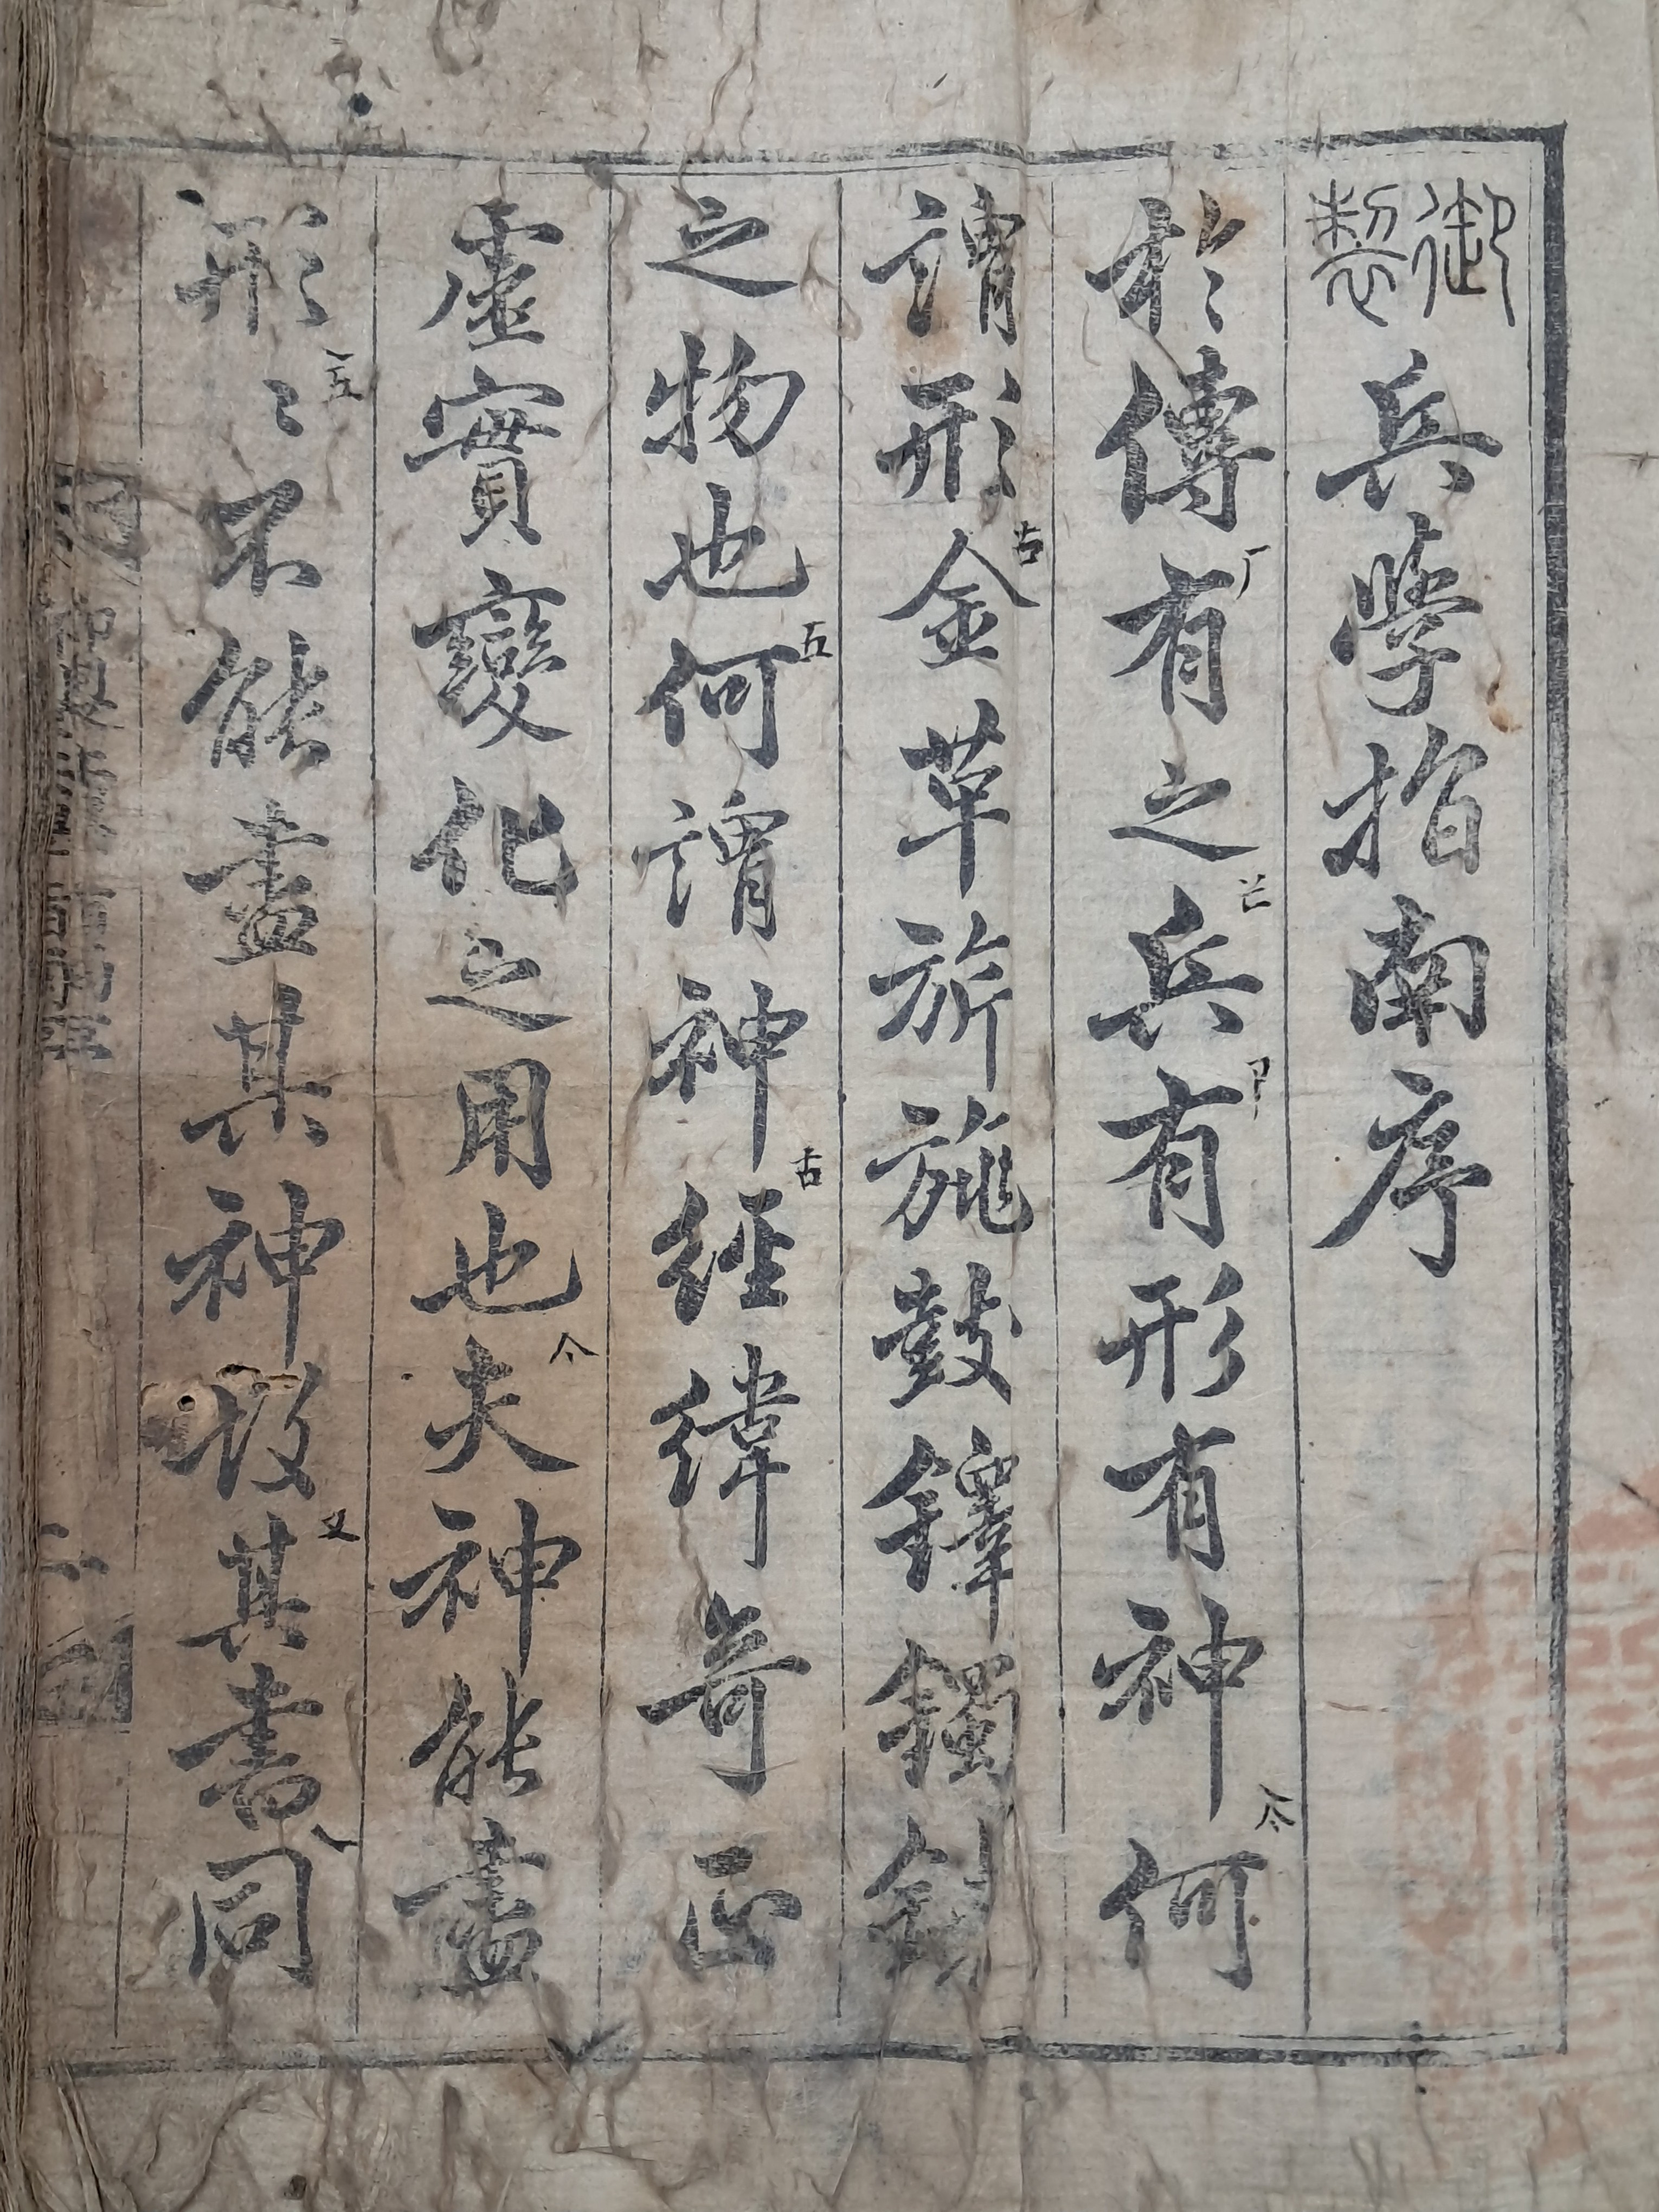 御製兵學指南序
於傳有之兵有形有神何
謂形金革旂旐鼓鐸鐲
之物也何謂神經緯奇正
虛實變化之用也夫神能盡
形〻不能盡其神故其書同